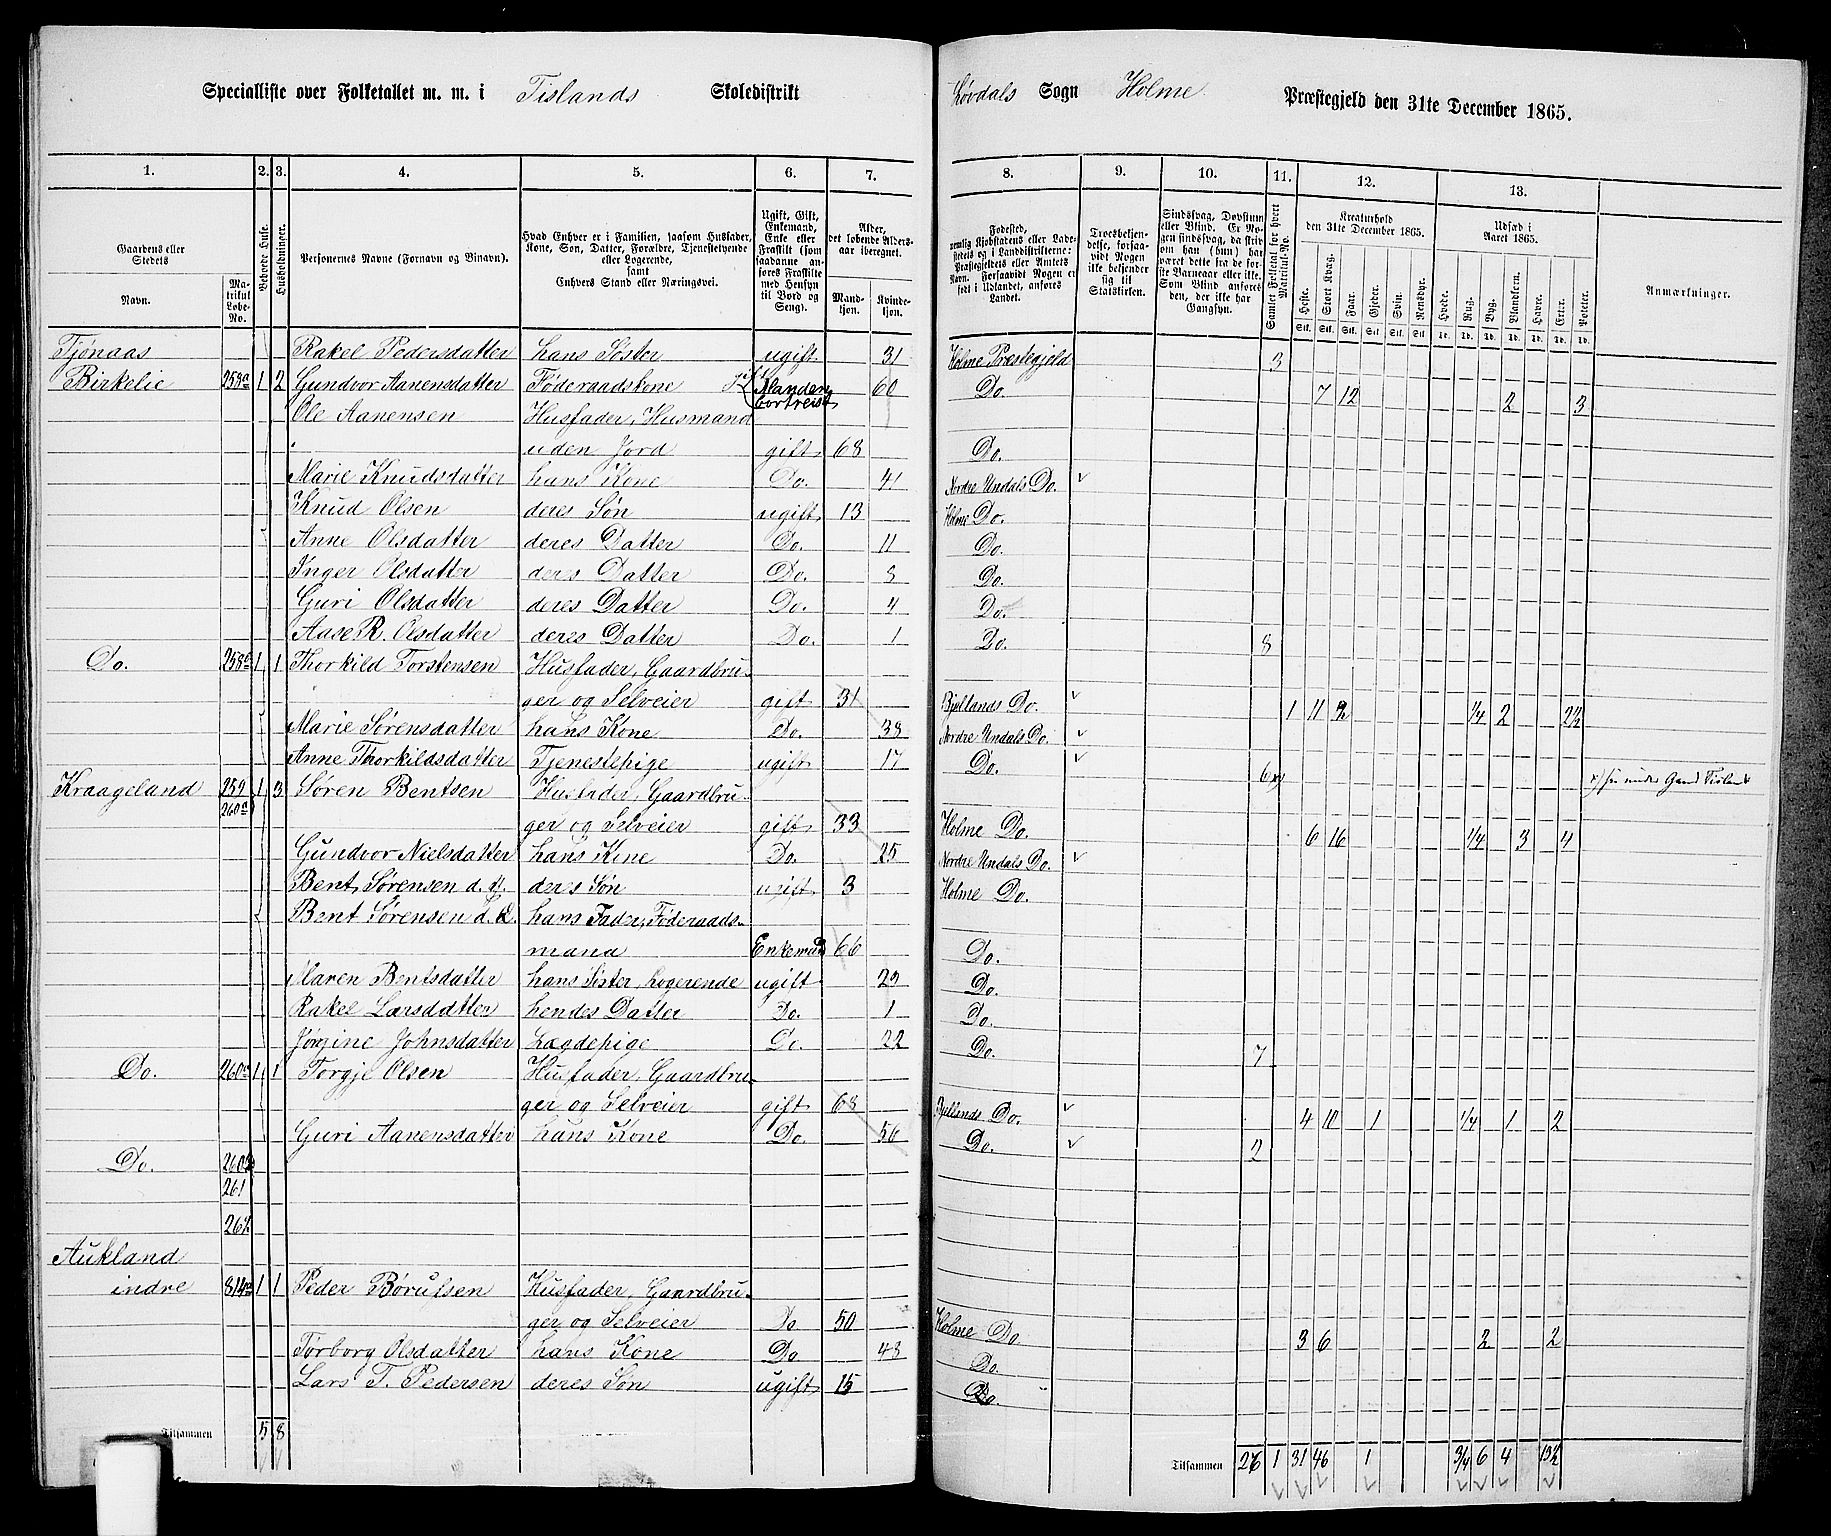 Specialliste over Folketallet m. m. i Tislands Skoledistrikt
Løvdals Sogn Holme Præstegjeld den 31te December 1865.
1. 2. 3. 4. 5. 6. 7. 8. 9. 10. 11. 12. 13.
Gaardens eller Stedets
Navn. Matrikul Løbe-No.
Beboede Huse.
Husholdninger.
Personernes Navne (Fornavn og Binavn).
Hvad Enhver er i Familien, saasom Husfader, Kone, Søn, Datter, Forældre, Tjenestetyende eller Logerende, samt Enhvers Stand eller Næringsvei.
Ugift, Gift, Enkemand, Enke eller Fraskilt (som saadanne anføres Fraskilte med Hensyn til Bord og Seng).
Alder, det løbende Aldersaar iberegnet.
Mandkjøn. Kvindekjøn.
Fødested, nemlig Kjøbstadens eller Ladestedets og i Landdistrikterne: Præstegjeldets eller Amtets Navn. Forsaavidt Nogen er født i Udlandet, anføres Landet.
Troesbekjendelse, forsaavidt Nogen ikke bekjender sig til Statskirken.
Sindssvag, Døvstum eller Blind.
Samlet Folketal for hvert Matrikul-No.
Kreaturhold den 31te December 1865.
Heste. Stort Kvæg. Faar. Gjeder. Svin. Rensdyr.
Udsæd i Aaret 1865.
Hvede. Rug. Byg. Blandkorn. Havre. Erter. Poteter.
Anmærkninger.
Tjønaas Rakel Pedersdatter hans Søster ugift 31 Holme Præstegjeld 3
Birkelie 258a 1 2 Gundvor Aanensdatter Føderaadskone gift Manden bortreist 60 Do. 7 12 2 3
Ole Aanensen Husfader, Husmand
uden Jord gift 68 Do.
Marie Knudsdatter hans Kone Do. 41 Nordre Undals Do.
Knud Olsen deres Søn ugift 13 Holme Do.
Anne Olsdatter deres Datter Do. 11 Do.
Inger Olsdatter deres Datter Do. 8 Do.
Guri Olsdatter deres Datter Do. 4 Do.
Aase R. Olsdatter deres Datter Do. 1 Do. 8
Do. 258 1 1 Thorkild Torstensen Husfader, Gaardbru-
ger og Selveier gift 31 Bjellands Do. 1 11 1/4 2 2½
Marie Sørensdatter hans Kone Do. 38 Nordre Undals Do.
Anne Thorkildsdatter Tjenestepige ugift 17 Do. 6
Kraageland 259 1 3 Søren Bentsen Husfader, Gaardbru-
260a ger og Selveier gift 33 Holme Do. 6 16 1/4 3 4
Gundvor Nielsdatter hans Kone Do. 25 Nordre Undals Do.
Bent Sørensen d. y. deres Søn ugift 3 Holme Do.
Bent Sørensen d. Æ. hans Fader, Føderaads-
mand Enkemand 66 Do.
Maren Bentsdatter hans Søster, Logerende ugift 29 Do.
Rakel Larsdatter hendes Datter Do. 1 Do.
Jørgine Johnsdatter Lægdepige Do. 22 Do. 7
Do. 260 1 1 Torgje Olsen Husfader, Gaardbru-
ger og Selveier gift 68 Bjellands Do. 4 10 1 1/4 1 2
Guri Aanensdatter hans Kone Do. 56 Do. 2
Do. 260
261
262
Aukland
indre 814 1 1 Peder Børufsen Husfader, Gaardbru-
ger og Selveier Do 50 Holme Do 3 6 2 2
Torborg Olsdatter hans Kone Do 48 Do.
Lars T. Pedersen deres Søn ugift 15 Do.
Tilsammen 5 8 Tilsammen 26 1 31 46 1 3/4 6 4 13½